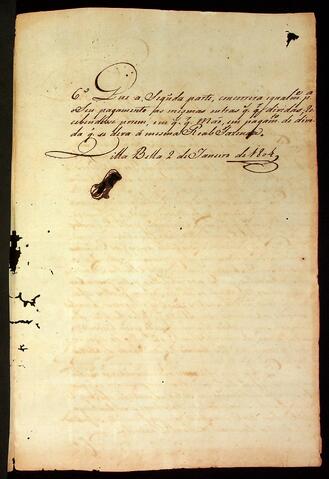 6.º Que a Segũda parte, concorrera igualm.te p.a
o Seu pagamento as mesmas outras q. q.r dividas, Re
cebendose porem, em q. q.r mão, em pagam.to de divi
da q. se deva á mesma Real Fazenda.
Villa Bella 2 de Janeiro de 1804